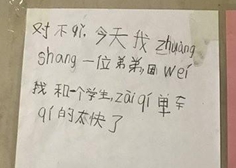 对不qǐ, 今天我 zhuàng
shang 一位弟弟, 因 wéi
我和一个学生, zài qí 单车
qí 的太快了